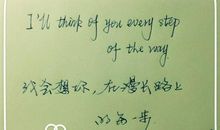 I'll think of you every step
of the way.
我会想你，在漫长路上
的每一步